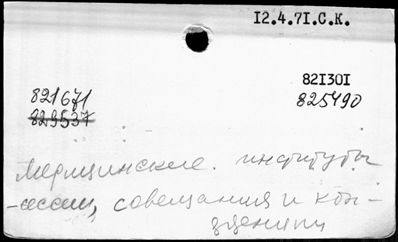 12.4.71.С.К.
821301
821671 825490
829537
Медицинские. институты
-сессии, совещания и кон-
ференции